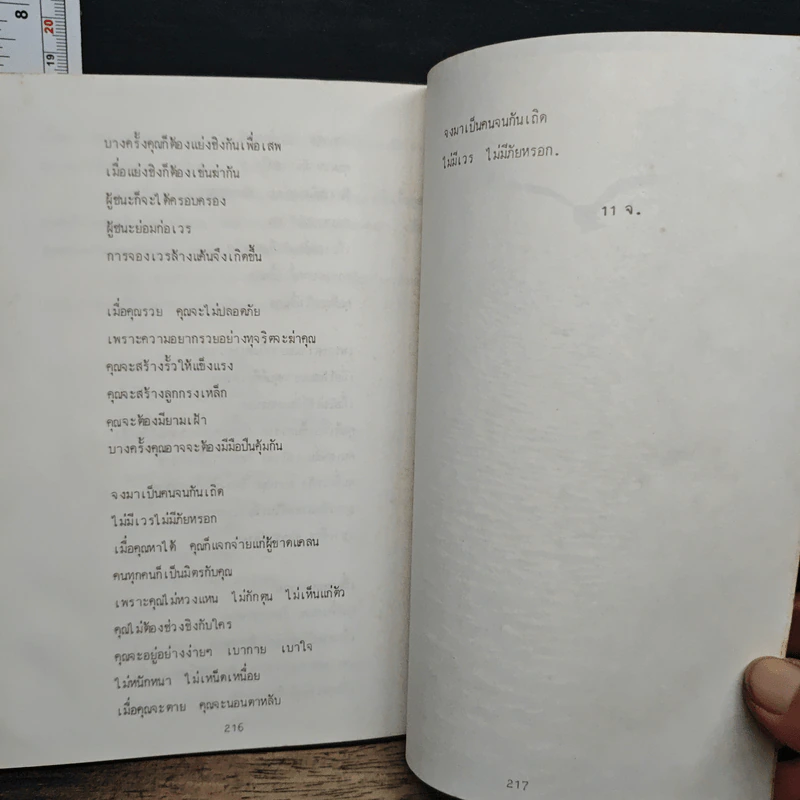 8
19 20
บางครั้งคุณก็ต้องแย่งชิงกันเพื่อเสพ
เมื่อแย่งชิงก็ต้องเข่นฆ่ากัน
ผู้ชนะก็จะได้ครอบครอง
ผู้ชนะย่อมก่อเวร
การจองเวรล้างแค้นจึงเกิดขึ้น
เมื่อคุณรวย คุณจะไม่ปลอดภัย
เพราะความอยากรวยอย่างทุจริตจะฆ่าคุณ
คุณจะสร้างรั้วให้แข็งแรง
คุณจะสร้างลูกกรงเหล็ก
คุณจะต้องมียามเฝ้า
บางครั้งคุณอาจจะต้องมีมือปืนคุ้มกัน
จงมาเป็นคนจนกันเถิด
ไม่มีเวรไม่มีภัยหรอก
เมื่อคุณหาได้ คุณก็แจกจ่ายแก่ผู้ขาดแคลน
คนทุกคนก็เป็นมิตรกับคุณ
เพราะคุณไม่หวงแหน ไม่กักตุน ไม่เห็นแก่ตัว
คุณไม่ต้องช่วงชิงกับใคร
คุณจะอยู่อย่างง่ายๆ เบากาย เบาใจ
ไม่หนักหนา ไม่เหน็ดเหนื่อย
เมื่อคุณจะตาย คุณจะนอนตาหลับ
216
จงมาเป็นคนจนกันเถิด
ไม่มีเวร ไม่มีภัยหรอก.
11 จ.
217